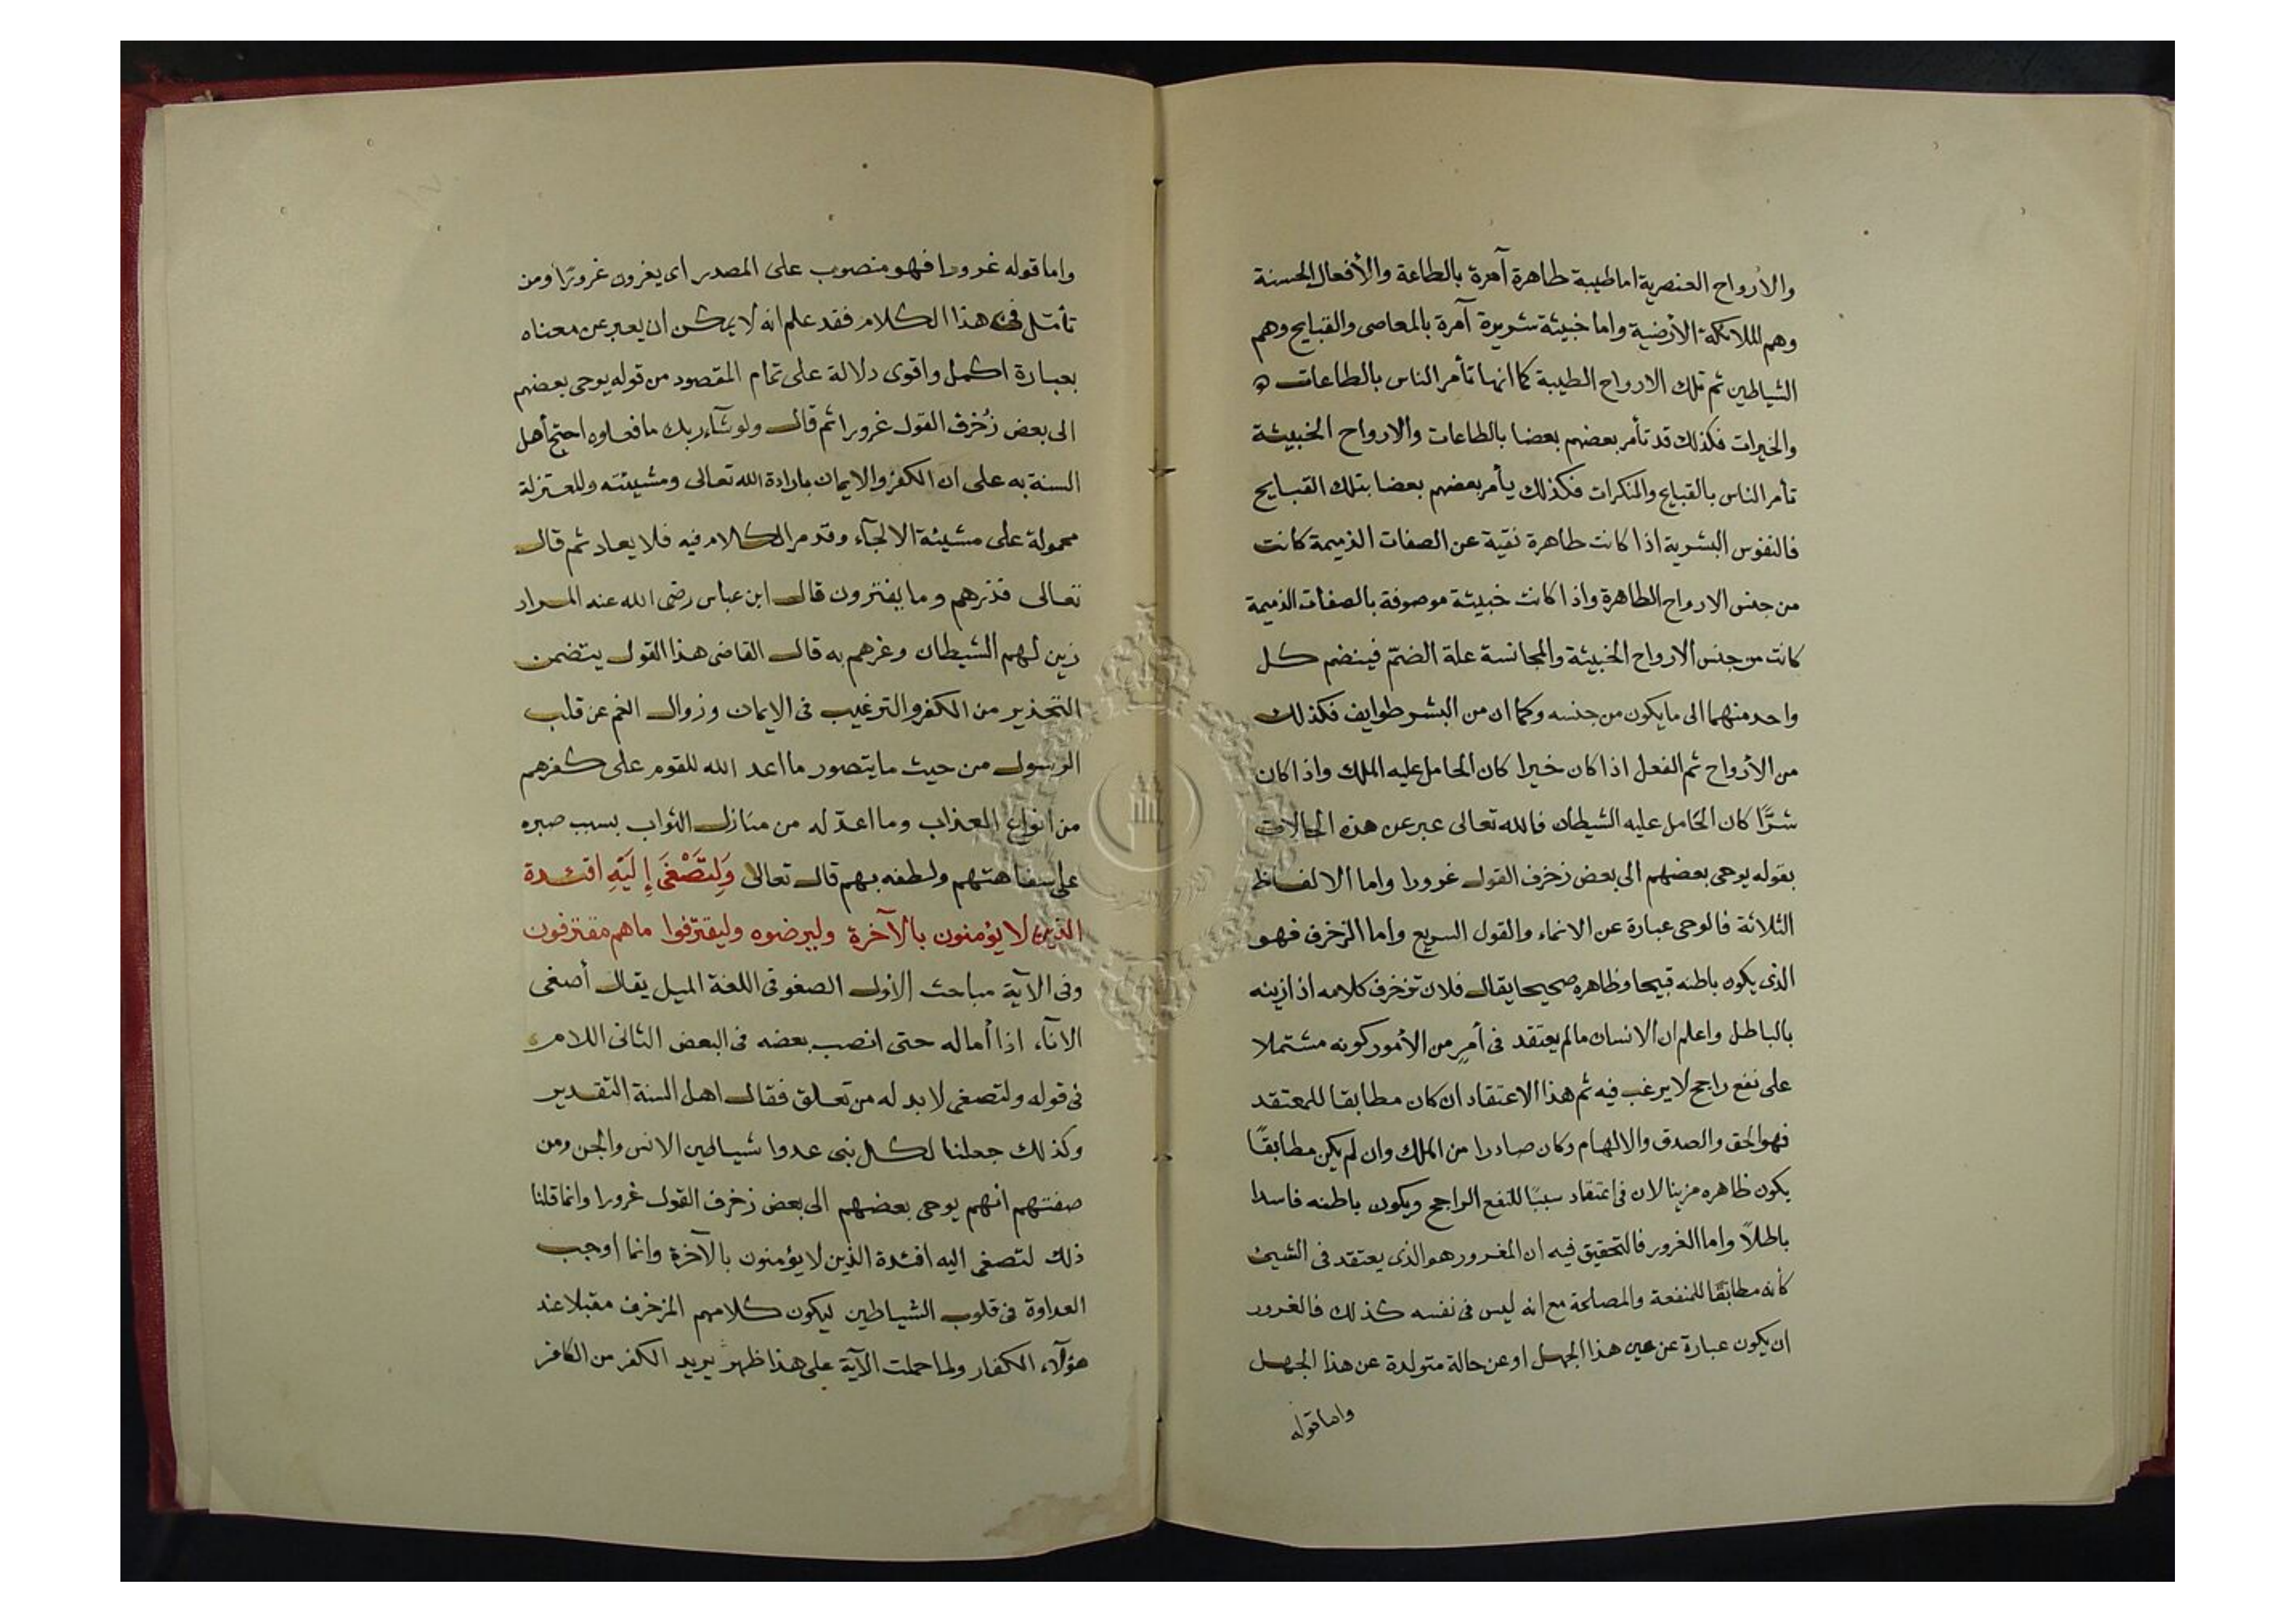 والأرواح العنصرية اما طيبة طاهرة آمرة بالطاعة والأفعال الحسنة
وهم الملائكة الأرضية واما خبيثة شريرة آمرة بالمعاصى والقبايح وهم
الشياطين ثم تلك الارواح الطيبة كما انها تأمر الناس بالطاعات
والخيرات فكذلك قد تأمر بعضهم بعضا بالطاعات والارواح الخبيثة
تأمر الناس بالقبايح والمنكرات فكذلك يأمر بعضهم بعضا بتلك القبايح
فالنفوس البشرية اذا كانت طاهرة نقية عن الصفات الذميمة كانت
من جنس الارواح الطاهرة واذا كانت خبيثة موصوفة بالصفات الذميمة
كانت من جنس الارواح الخبيثة والمجانسة علة الضمّ فينضم كل
واحد منهما الى ما يكون من جنسه وكما ان من البشر طوايف فكذلك
من الأرواح ثم الفعل اذا كان خيرا كان الحامل عليه الملك واذا كان
شرًّا كان الحامل عليه الشيطان فالله تعالى عبر عن هذه الحالات
بقوله يوحى بعضهم الى بعض زخرف القول غرورا واما الالفاظ
الثلاثة فالوحى عبارة عن الانماء والقول السريع واما الزخرف فهو
الذى يكون باطنه قبيحا وظاهره صحيحا يقال فلان تزخرف كلامه اذ ازينه
بالباطل واعلم ان الانسان مالم يعتقد فى أمرٍ من الأمور كونه مشتملا
على نفع راجح لا يرغب فيه ثم هذا الاعتقاد ان كان مطابقا للمعتقد
فهو الحق والصدق والالهام وكان صادرا من الملك وان لم يكن مطابقًا
يكون ظاهره مزينا لان فى اعتقاد سببًا للنفع الراجح ويكون باطنه فاسدا
باطلاً واما الغرور فالتحقيق فيه ان المغرور هو الذى يعتقد فى الشيئ
كأنه مطابقًا للمنفعة والمصلحة مع انه ليس فى نفسه كذلك فالغرور
ان يكون عبارة عن عين هذا الجهل او عن حالة متولدة عن هذا الجهل
واما قوله
واما قوله غرورا فهو منصوب على المصدر اى يغرون غرورًا ومن
تأمّل فى هذا الكلام فقد علم انه لا يمكن ان يعبر عن معناه
بعبارة اكمل واقوى دلالة على تمام المقصود من قوله يوحى بعضهم
الى بعض زُخرف القول غرورا ثم قال ولو شآء ربك ما فعلوه احتج أهل
السنة به على ان الكفر والايمان بارادة الله تعالى ومشيئته وللمعتزلة
محمولة على مشيئة الالجآء وقد مر الكلام فيه فلا يعاد ثم قال
تعالى فذرهم وما يفترون قال ابن عباس رضى الله عنه المراد
زين لهم الشيطان وغرهم به قال القاضى هذا القول يتضمن
التحذير من الكفر والترغيب فى الايمان وزوال الغم عن قلب
الرسول من حيث ما يتصور ما اعد الله للقوم على كفرهم
من انواع العذاب وما اعدّ له من منازل الثواب بسبب صبره
على سفاهتهم ولطفه بهم قال تعالى وَلِتَصْغَى إِلَيْهِ افئدة
الذين لا يؤمنون بالآخرة وليرضوه وليقترفوا ما هم مقترفون
وفى الآية مباحث الأول الصغو فى اللغة الميل يقال أصغى
الانآء اذا أماله حتى انصب بعضه فى البعض الثانى اللام
فى قوله ولتصغى لا بد له من تعلق فقال اهل السنة التقدير
وكذلك جعلنا لكل نبى عدوا شياطين الانس والجن ومن
صفتهم انهم يوحى بعضهم الى بعض زخرف القول غرورا وانما قلنا
ذلك لتصغى اليه افئدة الذين لا يؤمنون بالآخرة وانما اوجب
العداوة فى قلوب الشياطين ليكون كلامهم المزخرف مقبلا عند
هؤلآء الكفار ولما حملت الآية على هذا ظهر يريد الكفر من الكافر